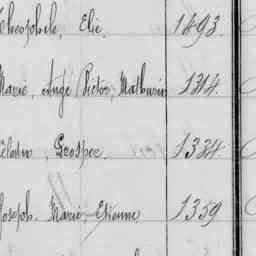 Théophile, Elie. 1293.
Marie, Ange Victor, Mathurin 1314.
Prosper. 1334
Joseph. Marie, Etienne 1359